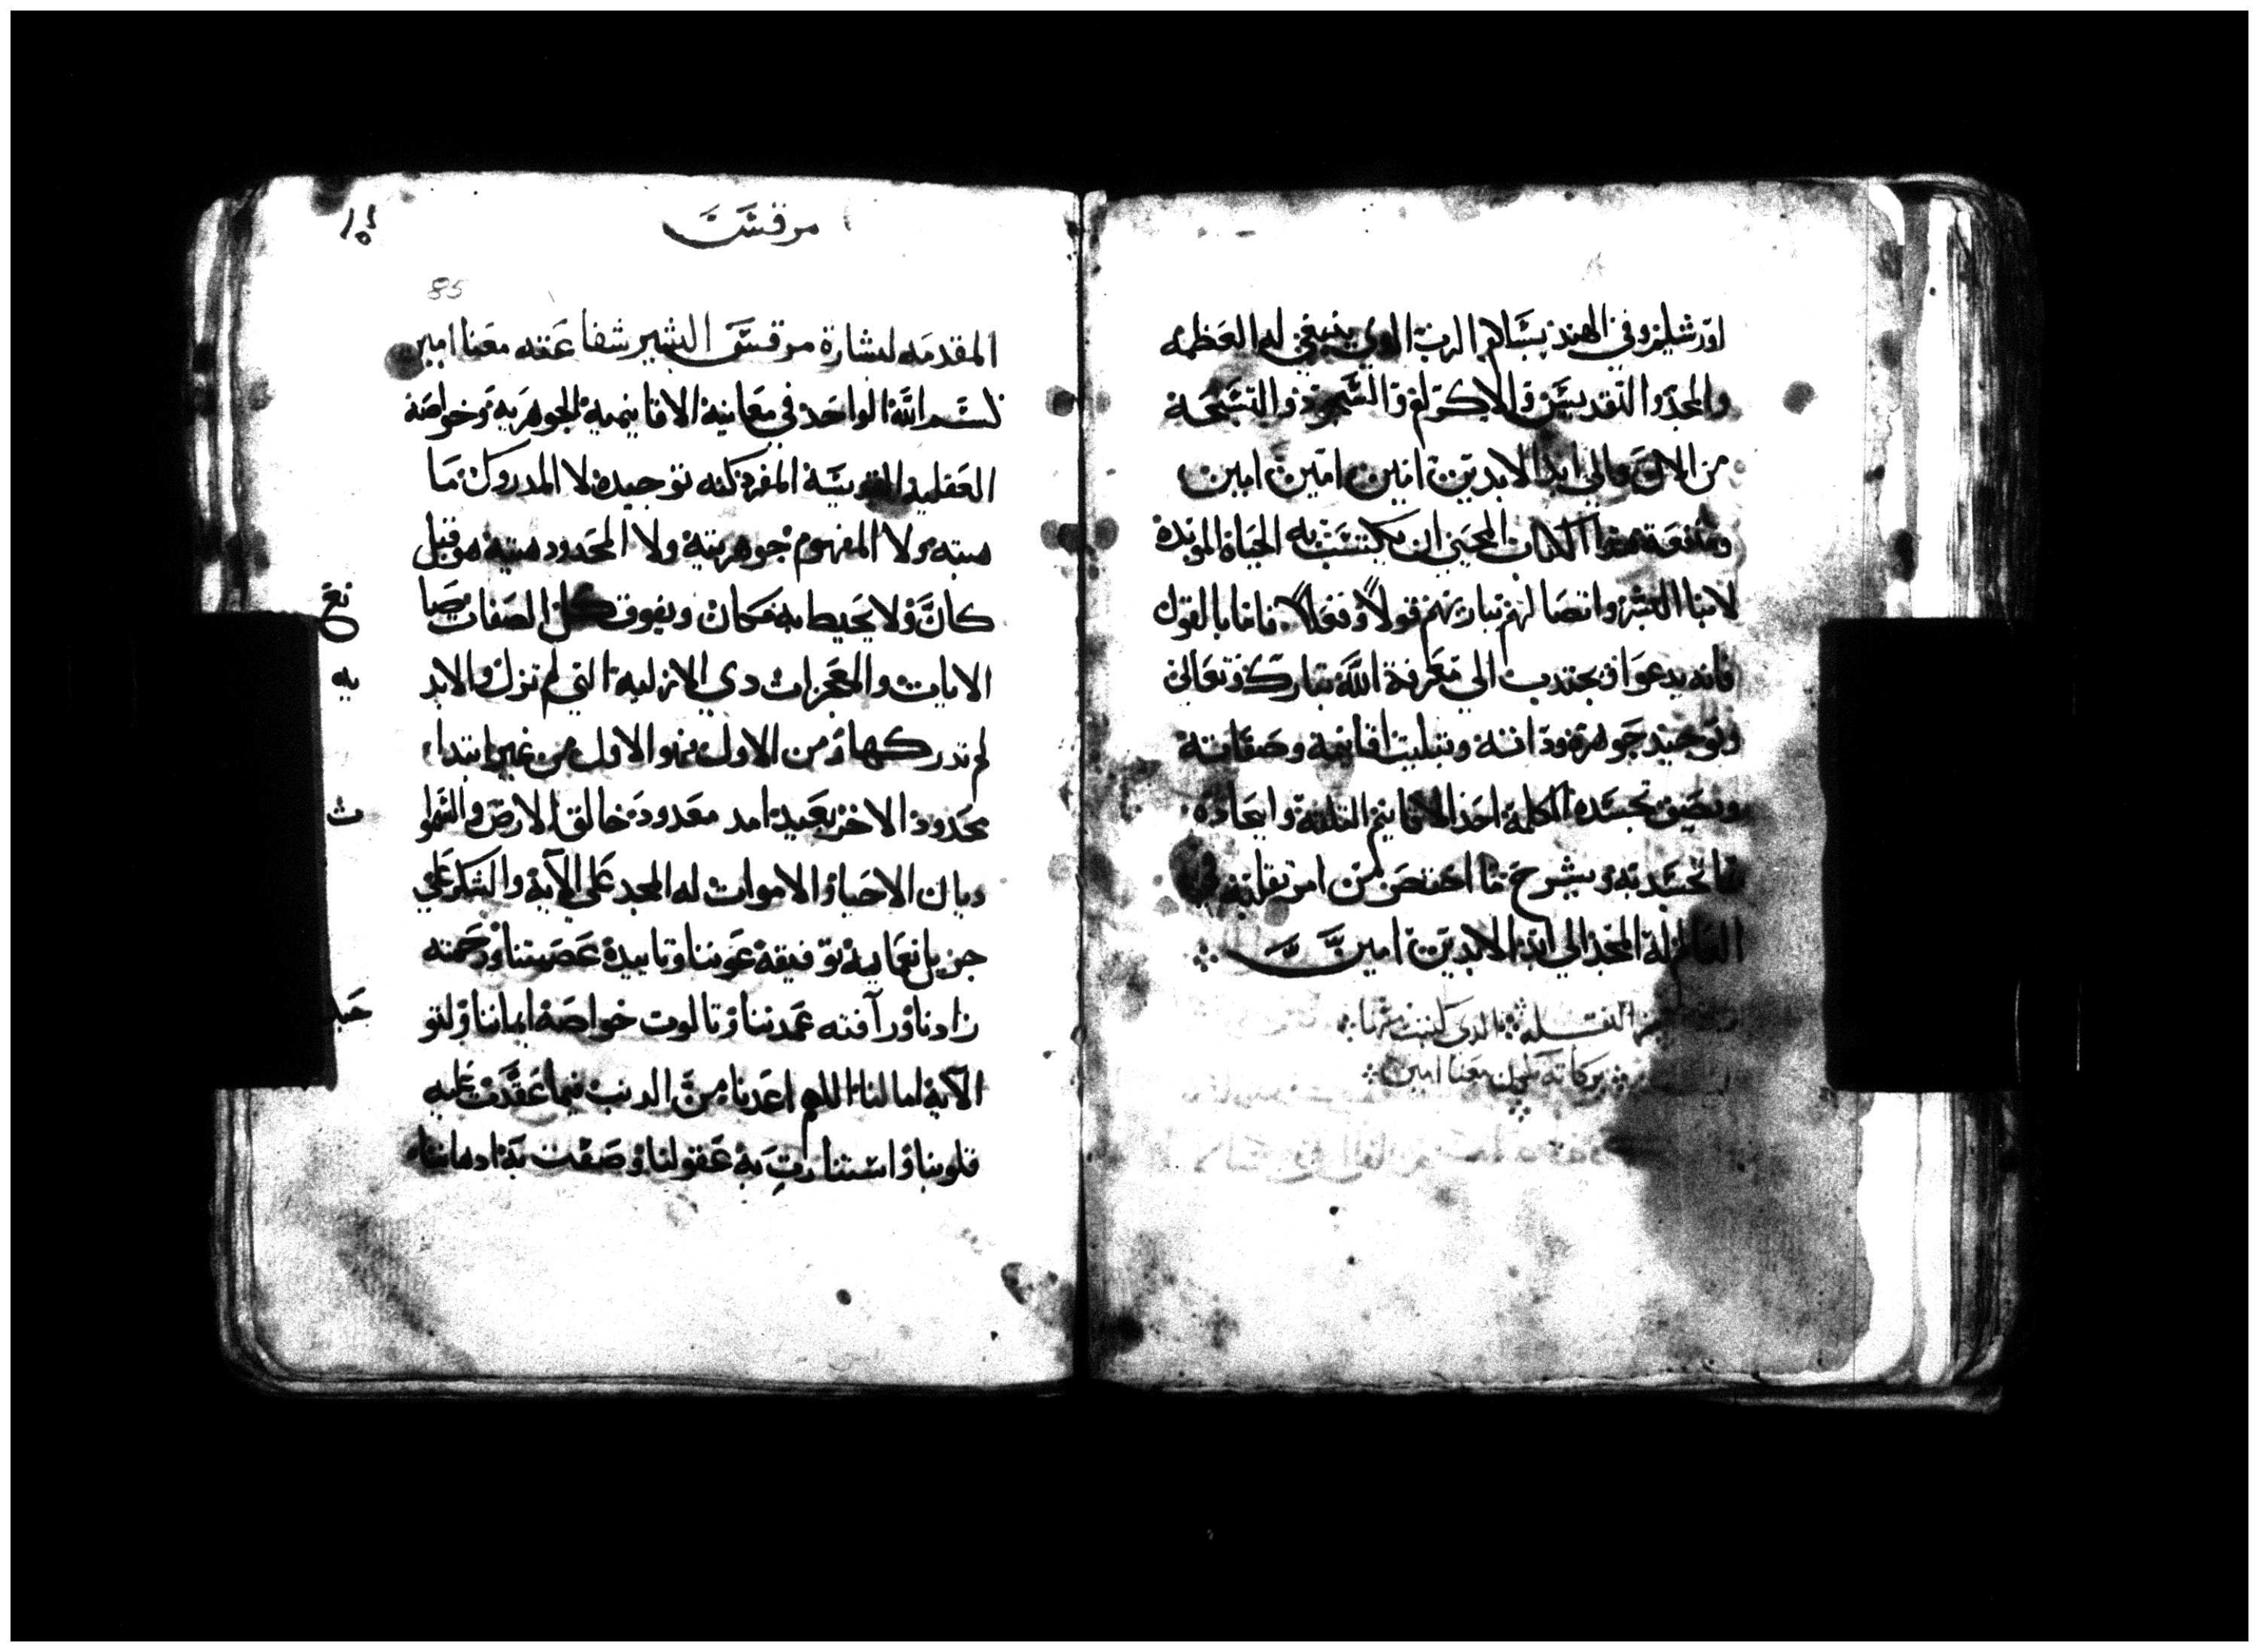 اورشليم وفي الهند بسلام الرب الدي ينبغي له العظمه
والمجد والتقديس والاكرام والسجود والتسبحة
من الان والي ابد الابدين امين امين امين
ومنفعة هدا الكتاب المحيي ان يكتسب به الحياة الموبدة
لابنا البشر واتصالهم بباريهم قولاً وفعلاً فاما بالقول
فانه يدعوا ويجتدب الي معرفة الله تبارك وتعالي
وتوحيد جوهره وداته وتتليت اقانيمة وصفاتة
تجسد الكلمة احد الاقانيم التلتة واتحاده
بما تجسد به ويشرح ما اختص من
العالم له المجد الي ابد الابدين امين
الدي كتبت منها
بركاته معنا امين
مرقس
85
المقدمه لبشارة مرقس البشير شفاعته معنا امين
بسم الله الواحد في معانية الاقانيمية الجوهرية وخواصة
العقلية المفرد كنه توحيدة لا المدروك ما
هيته ولا المفهوم جوهريتة ولا المحدود هيتة هو قبل
كان ولا يحيط به مكان ويفوق كل الصفات صبا
نع
الايات والمعجزات دي الازلية التي لم تزل والابد
يه
لم تدركها ومن الاول فهو الاول من غير ابتداء
محدود الاخر بعيد امد معدود خالق الارض والسموا
ت
ديان الاحيا والاموات له المجد علي الآية والشكر علي
جزيل نعماية توفيقه عوننا وتاييده عصمتنا ورحمته
زادنا ورآفته عمدتنا وتالوت خواصة ايماننا ولتو
حيد
الآية امالنا اللهم اعدنا من الدنب فيما عقدت عليه
قلوبنا واستنارت به عقولنا وصفت به ادهاننا